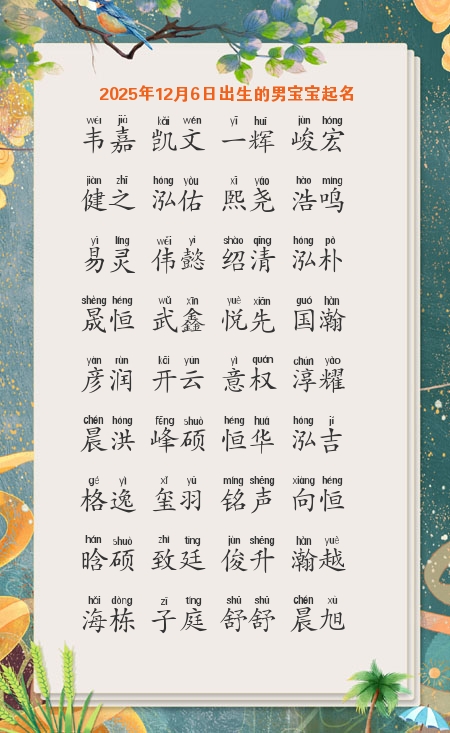 2025年12月6日出生的男宝宝起名
wéi jiā kǎi wén yī huī jùn hóng
韦嘉 凯文 一辉 峻宏
jiàn zhī hóng yòu xī yáo hào míng
健之 泓佑 熙尧 浩鸣
yì líng wěi yì shào qīng hóng pò
易灵 伟懿 绍清 泓朴
shèng héng wǔ xīn yuè xiān guó hàn
晟恒 武鑫 悦先 国瀚
yàn rùn kāi yún yì quán chún yào
彦润 开云 意权 淳耀
chén hóng fēng shuò héng huá hóng jí
晨洪 峰硕 恒华 泓吉
gé yì xǐ yǔ míng shēng xiàng héng
格逸 玺羽 铭声 向恒
hán shuò zhì tíng jùn shēng hàn yuè
晗硕 致廷 俊升 瀚越
hǎi dòng zǐ tíng shū shū chén xù
海栋 子庭 舒舒 晨旭